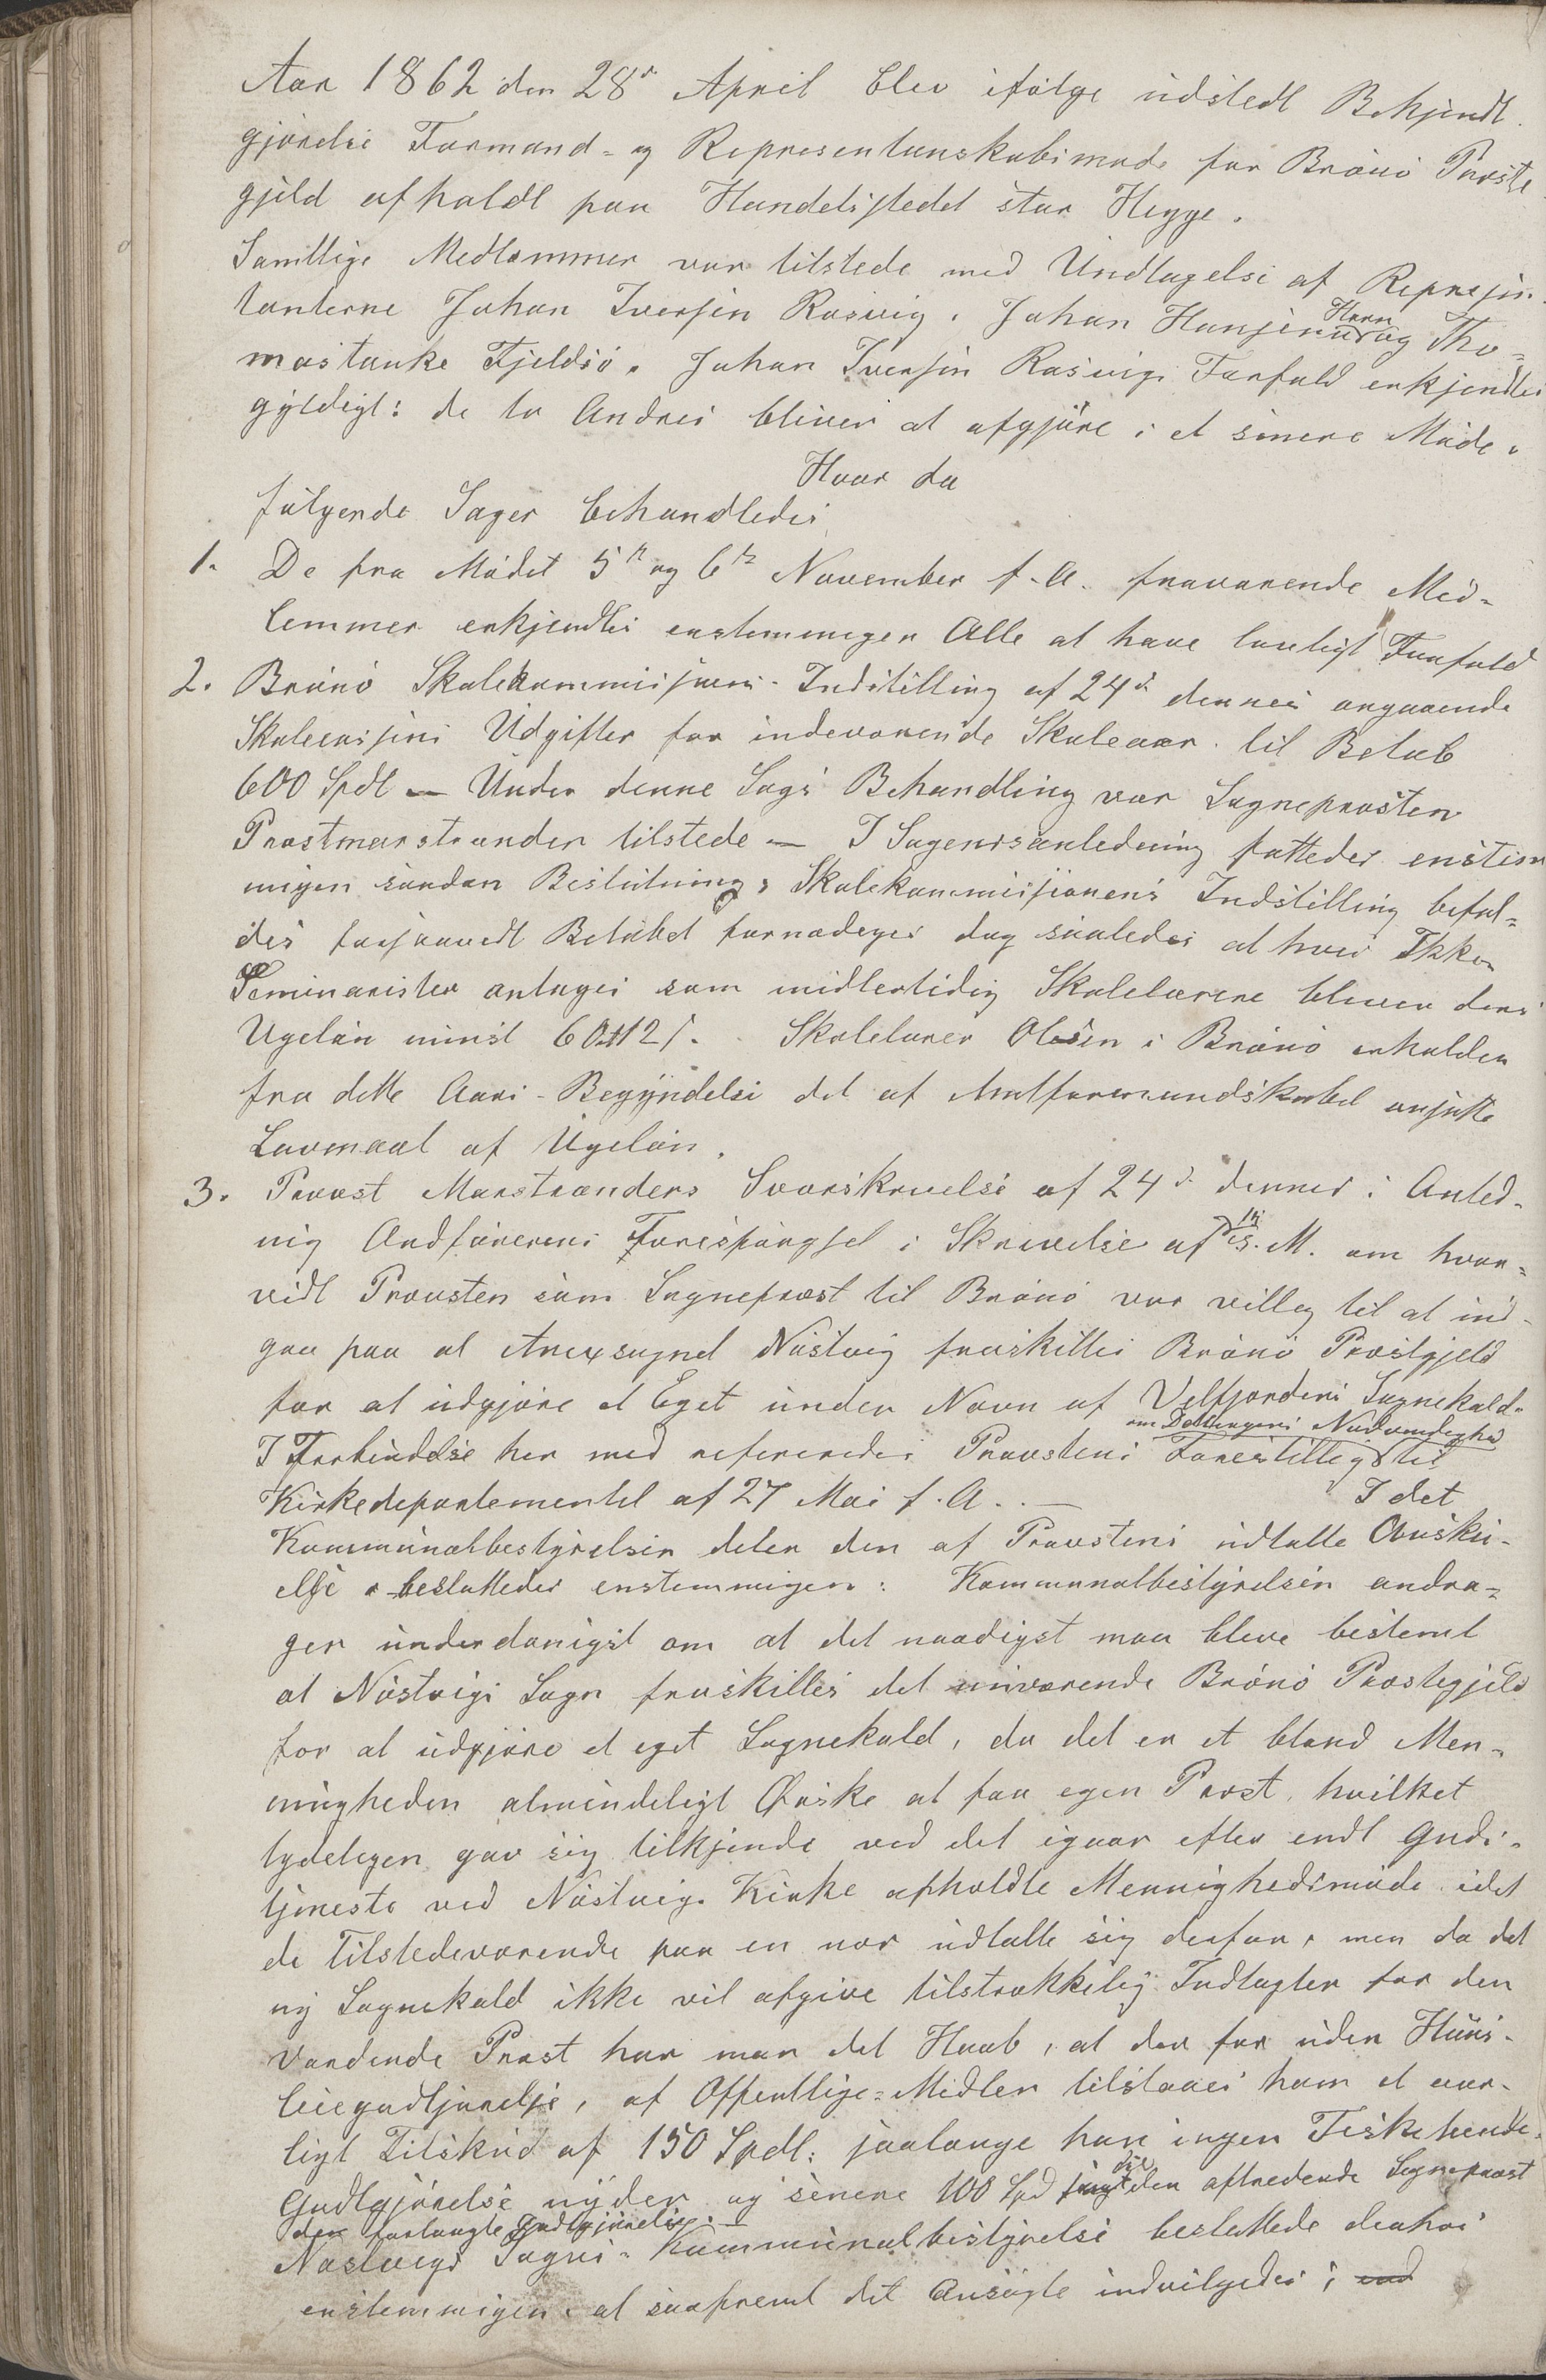 Aar 1862 den 28de April blev ifølge udstedt Bekjendt-
gjørelse Formand- og Representanskabsmøde for Brønø Præste-
gjeld afholdt paa Handelsstedet stor Hegge.
Samtlige Medlemmer var tilstede med Undtagelse af Represen-
tanterne Johan Iversen Rosvig, Johan Hansen Horn og Tho-
mastanke Fjeldsø. Johan Iversen Rosvigs Forfald erkjendtes
gyldigt: de to Andres bliver at afgjøre i et senere Møde.
Hvor da
følgende Sager behandledes
1. De fra Mødet 5te og 6te November f. A. fraværende Med-
lemmer erkjendtes enstemmigen Alle at have lovligt Forfald
2. Brønø Skolekommisjons Indstilling af 24de dennes angaaende
Skolecassens Udgifter for indeværende Skoleaar til Beløb
600 Spdl — Under denne Sags Behandling var Sognepræsten
Provst Marstrander tilstede — I Sagens anledning fattedes enstem
migen saadan Beslutning: Skolekommissionens Indstilling befal-
des forsaavidt Beløbet fornødiges dog saaledes at hvis Ikke-
Seminarister antages som midlertidig Skolelærere bliver deres
Ugeløn minst 60 ß. Skolelærer Olesen i Brønø erholder
fra dette Aars Begyndelse det af Amtformandskabet ansatte
Lavmaal af Ugeløn.
3. Provst Marstranders Svarskrivelse af 24de dennes i Anled-
nig Ordførerens Forespørgsel i Skrivelse af 15de d. M. om hvor-
vidt Provsten som Sognepræst til Brønø var villig til at ind-
gaa paa at Anexsognet Nøstvig fraskilles Brønø Præstgjeld
for at udgjøre et Eget under Navn af Velfjordens Sognekald.
I Forbindelse her med refereredes Provstens Forestillig om Delingens Nødvendighed til
Kirkedepartementet af 27 Mai f. A. — I det
Kommunalbestyrelsen deler den af Provstens udtalte Anskú-
else besluttedes enstemmigen: Kommunalbestyrelsen andra-
ger underdanigst om at det naadigst maa blive bestemt
at Nøstvigs Sogn fraskilles det nuværende Brønø Præstegjeld
for at udgjøre et eget Sognekald, da det er et bland Men-
nigheden almindeligt Ønske at faa egen Præst, hvilket
tydeligen gav sig tilkjende ved det igaar efter endt Guds-
tjeneste ved Nøstvigs Kirke afholdte Mennighedsmøde idet
de Tilstedeværende paa en nær udtalte sig derfor, men da det
ny Sognekald ikke vil afgive tilstrækkelig Indtægter for den
vordende Præst har man det Haab, at der for uden Huus-
leiegodtjørelse, af Offentlige-Midler tilstaaes ham et aar-
ligt Tilskud af 150 Spdl: saalænge han ingen Fisketiende-
Godtgjørelse nyder og senere 100 Spd til den aftredende Sognepræst
den forlangte Godtgjørelse. —
Nøstvigs Sogns- Kommunalbestyrelse besluttede derhos
enstemmigen at saafremt det Ansøgte indvilgedes;